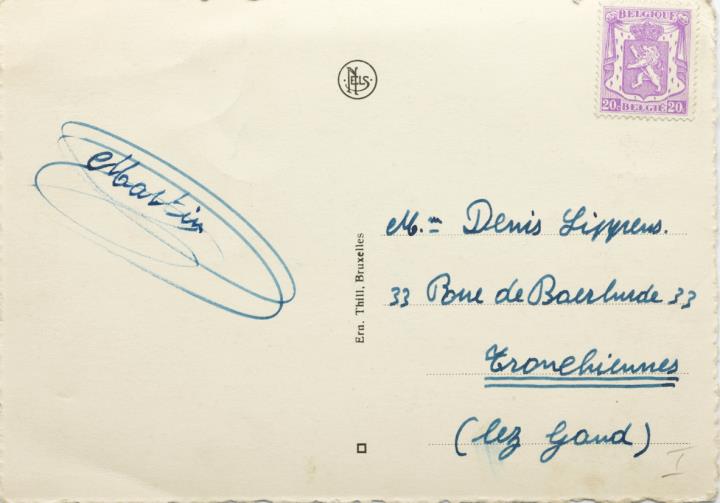 BELGIQUE
20c BELGIË 20c
NELS
Martin
M.m Denis Lippens.
33 Rue de Baerhurde 33
Tronchiennes
(lez Gand)
Ern. Thill, Bruxelles
I